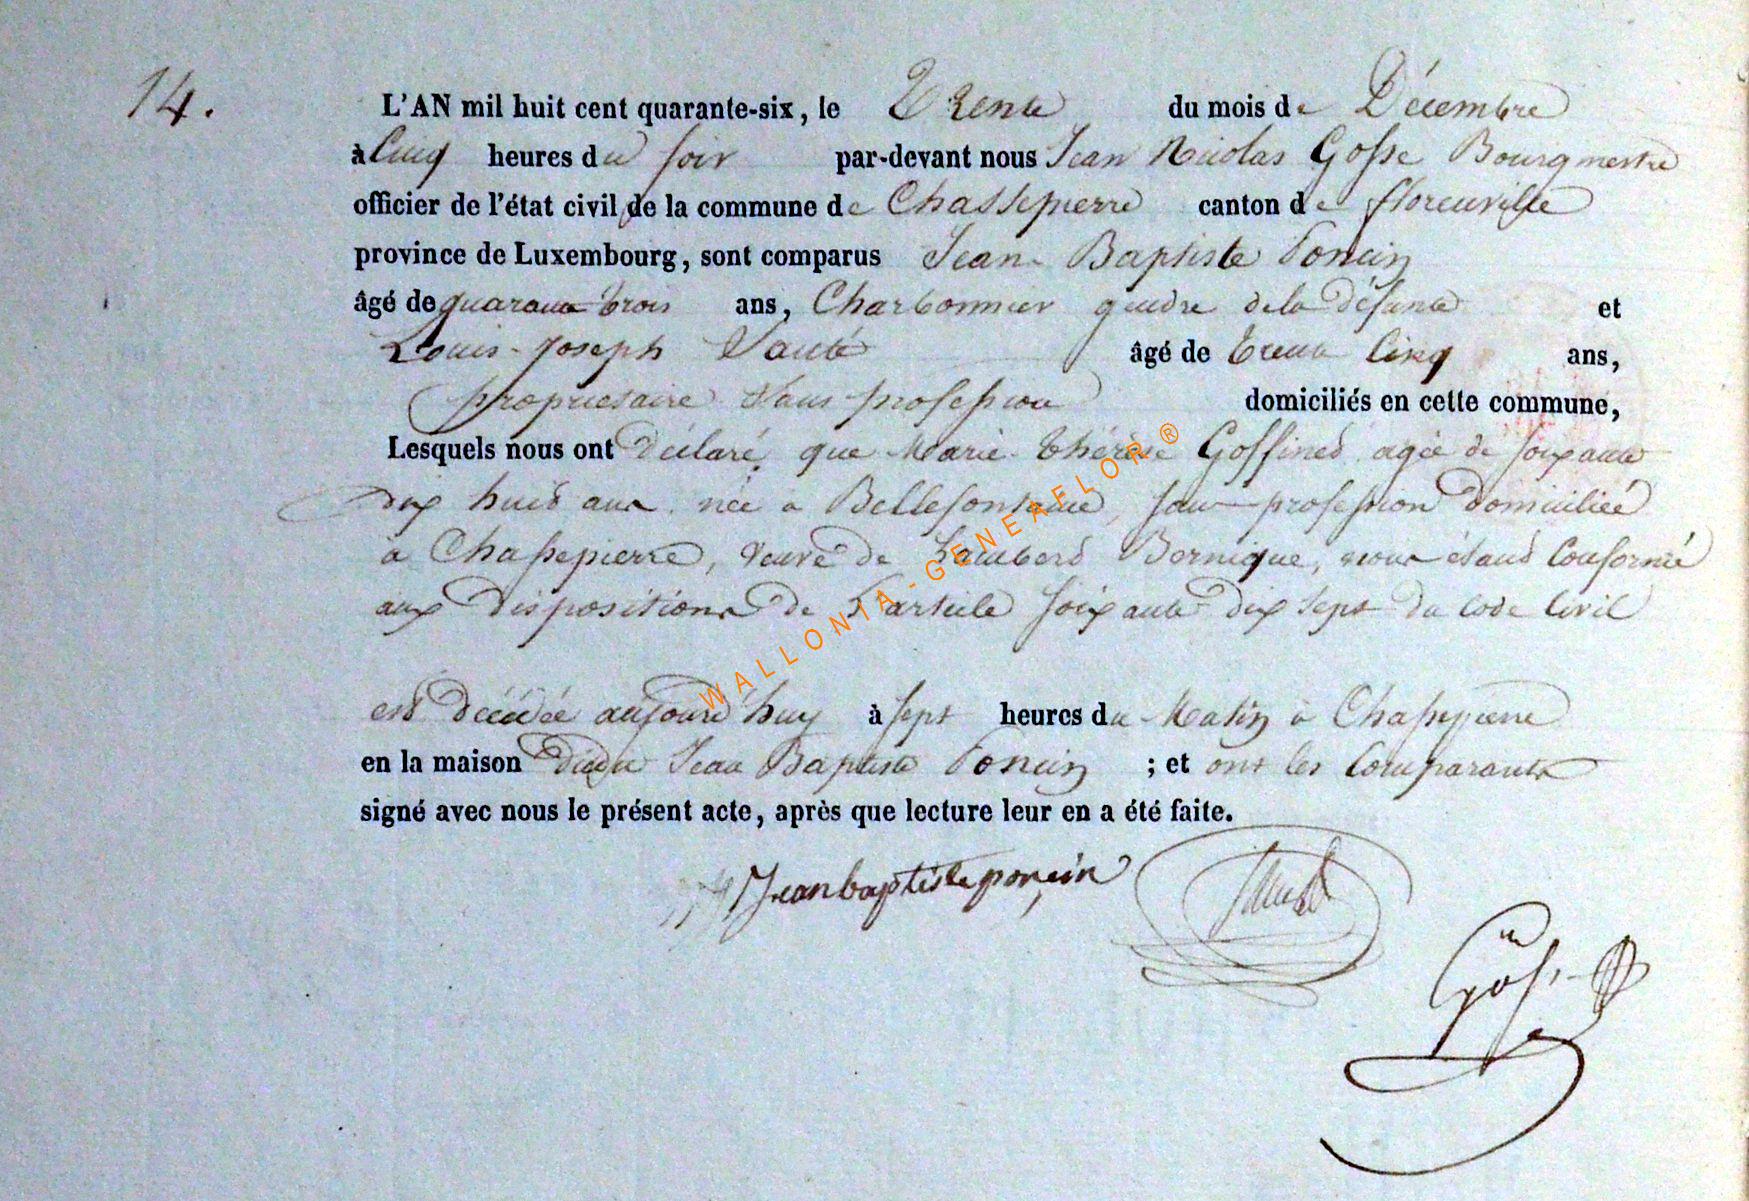 14.
L'AN mil huit cent quarante-six, le Trente du mois de Décembre
à Cinq heures du soir par-devant nous Jean Nicolas Gosse Bourgmestre
officier de l'état civil de la commune de Chassepierre canton de florenville
province de Luxembourg, sont comparus Jean Baptiste Poncin
âgé de quarante trois ans, Charbonnier gendre de la Défunte et
Louis-Joseph âgé de trente Cinq ans,
propriétaire sans profession domiciliés en cette commune,
Lesquels nous ont Déclaré que Marie Thérèse Goffinet agée de soixante
dix huit ans née a Bellefontaine, sans profession Domiciliée
à Chassepierre, veuve de Lambert Bernique, nous étant Conformé
aux Dispositions De L'article soixante dix sept du Code Civil
est décédée aujourd'huy à sept heures du Matin à Chassepierre
en la maison Dudit Jean Baptiste Poncin ; et ont les Comparants
signé avec nous le présent acte, après que lecture leur en a été faite.
Jean baptiste poncin
Gosse
WALLONIA-GENEAFLOR ®